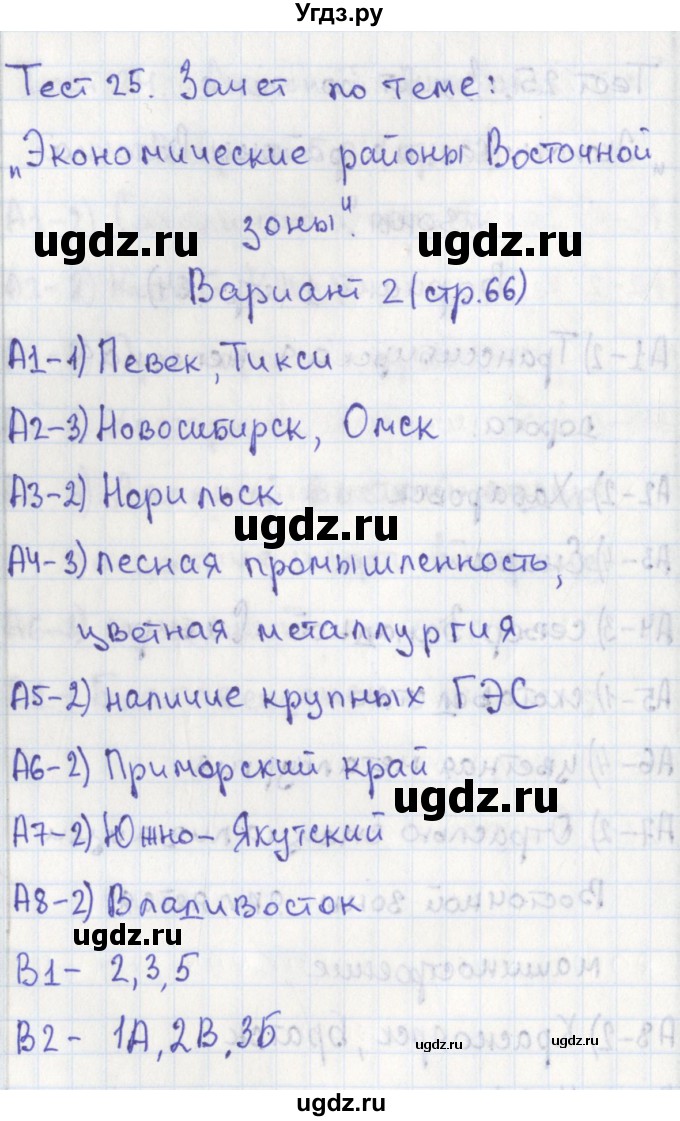 Угдз.ру
Тест 25. Зачет по теме:
„Экономические районы Восточной
зоны".
ugdz.ru ugdz.ru
Вариант 2 (стр.66)
А1-1) Певек, Тикси
А2-3) Новосибирск, Омск
А3-2) Норильск
ugdz.ru
А4-3) лесная промышленность,
цветная металлургия
А5-2) наличие крупных ГЭС
А6-2) Приморский край
ugdz.ru
А7-2) Южно-Якутский
А8-2) Владивосток
ugdz.ru
В1- 2,3,5
В2- 1А,2В,3Б
ugdz.ru ugdz.ru
ugdz.ru